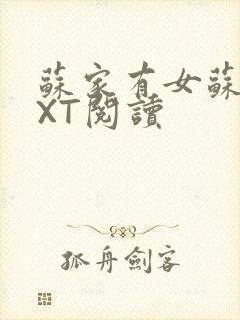 蘇家有女蘇
XT閱讀
孤舟劍客